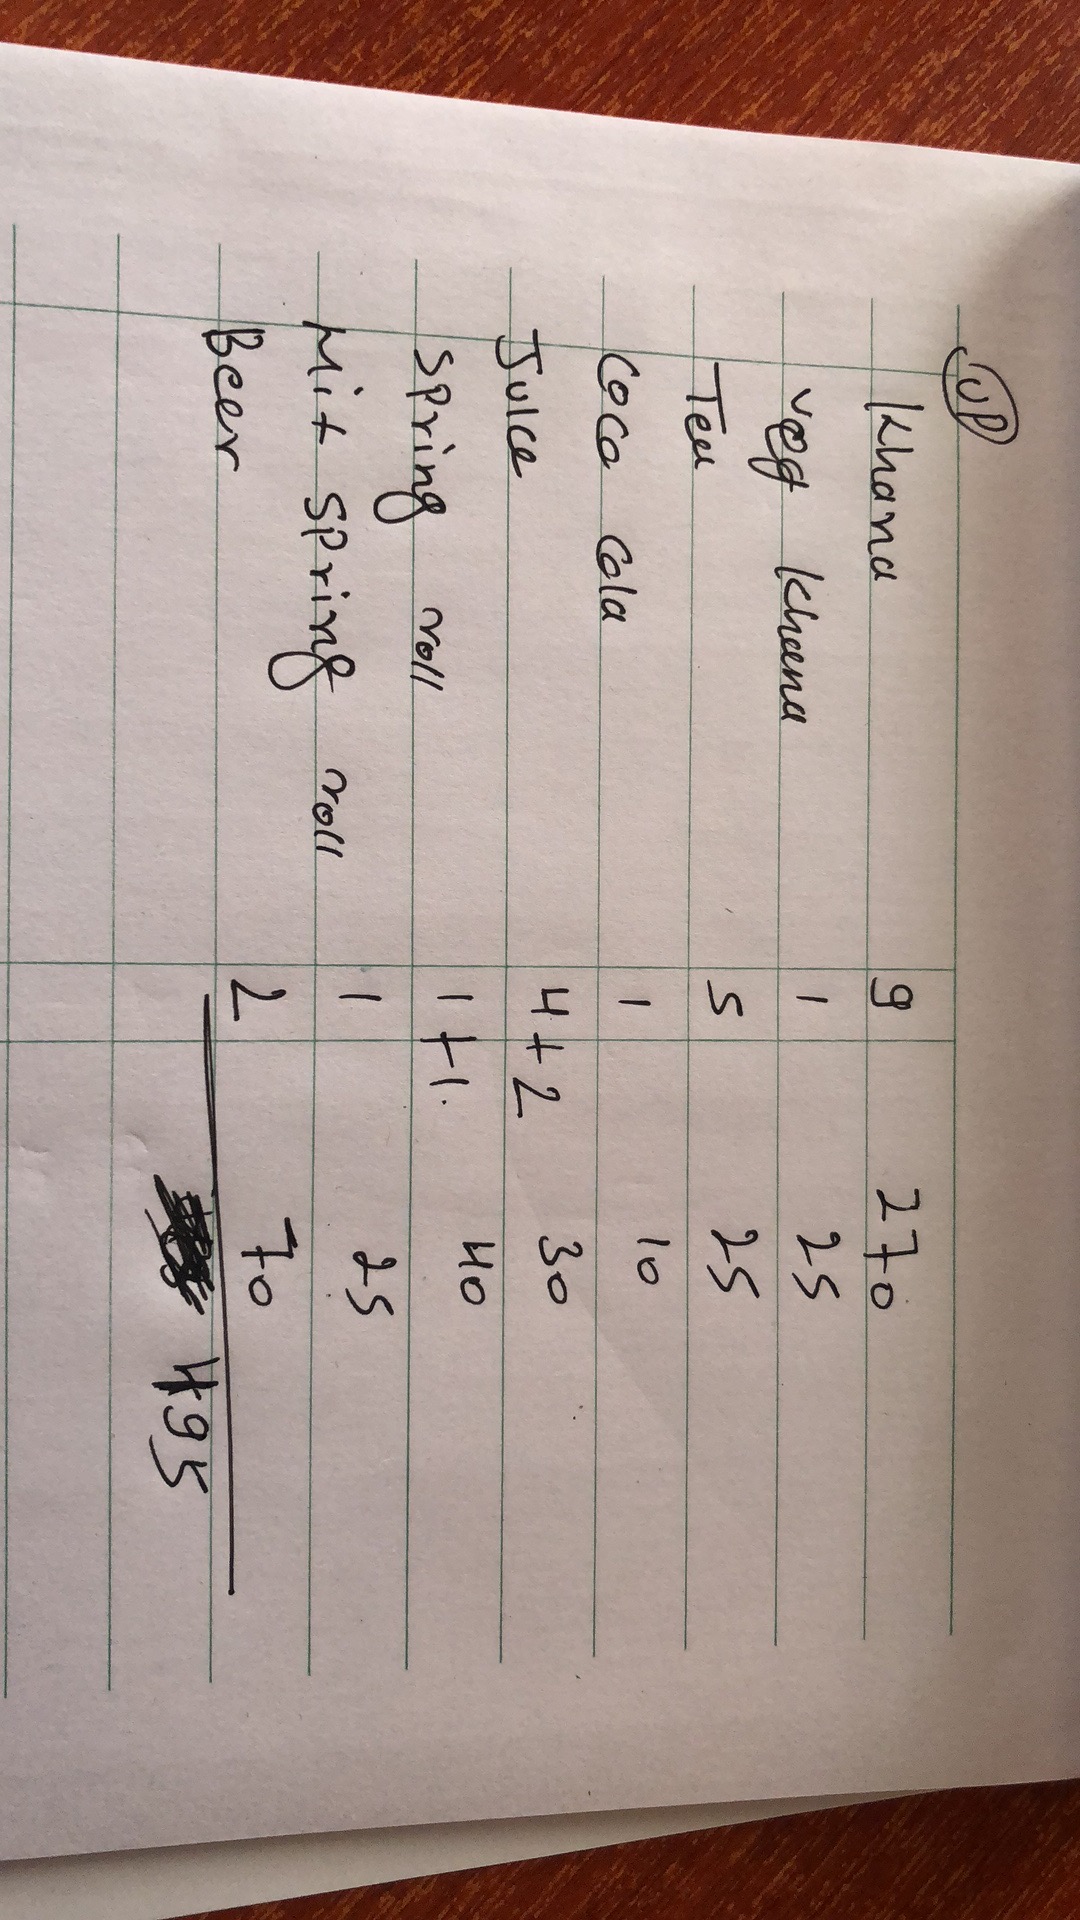 UP
Khana 9 270
veg Khana 1 25
Tea 5 25
Coca Cola 1 10
Juice 4+2 30
Spring roll 1+1. 40
Mit Spring roll 1 25
Beer 2 70
495